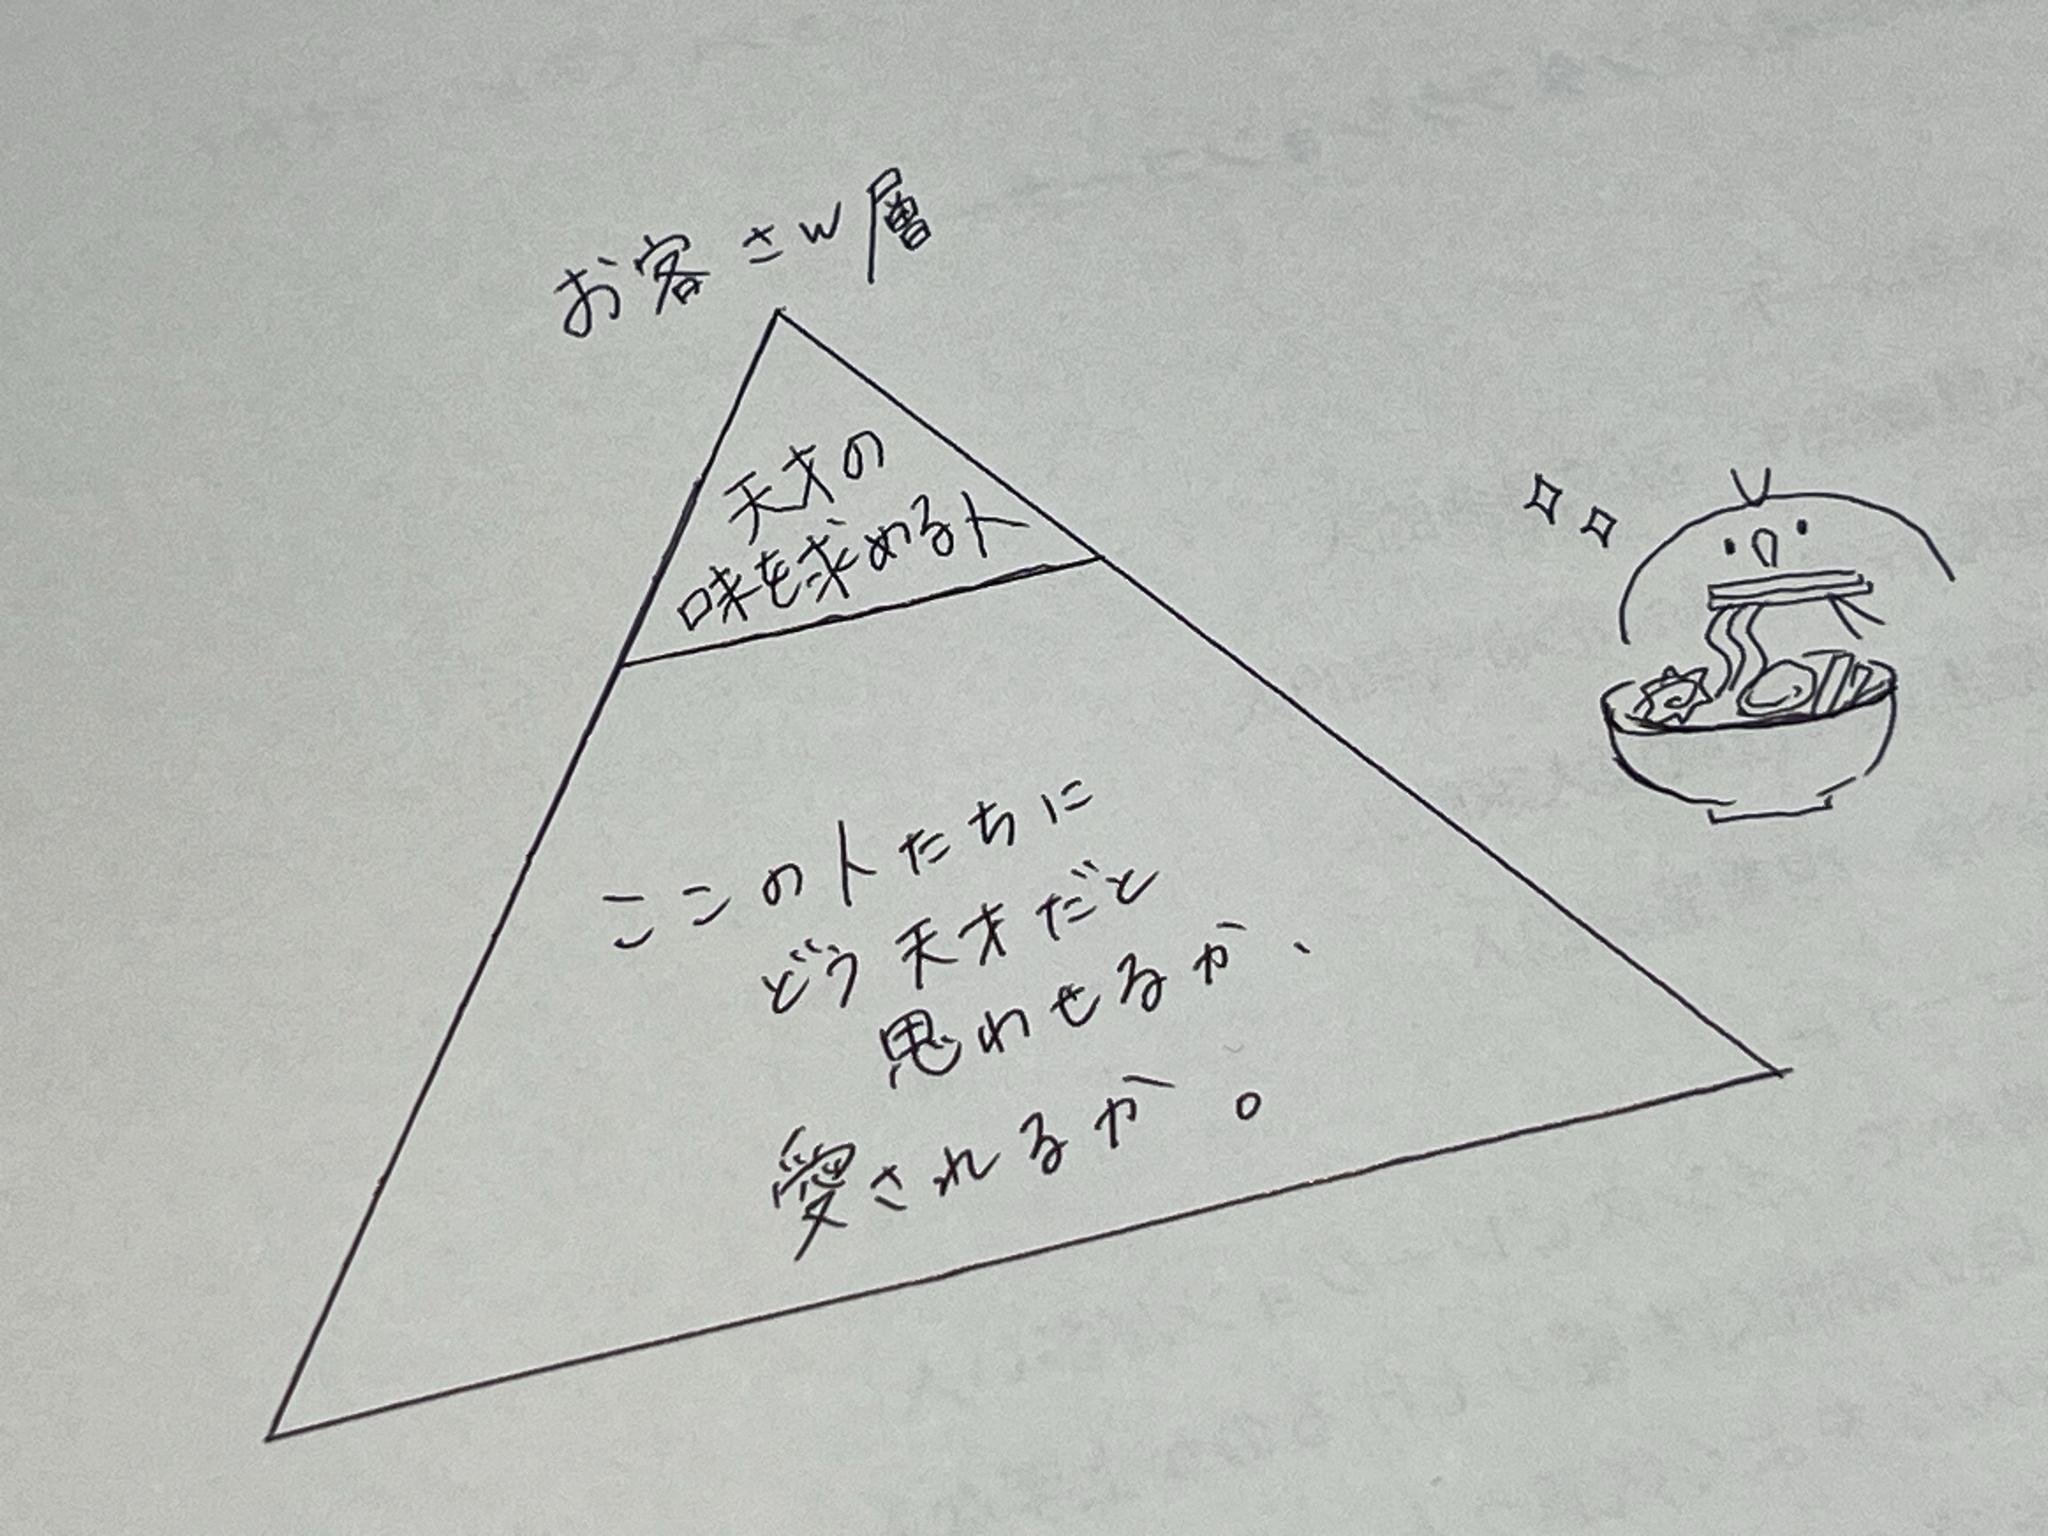 お客さん層
天才の
味を求める人
ここの人たちに
どう天才だと
思わせるか、
愛されるか。